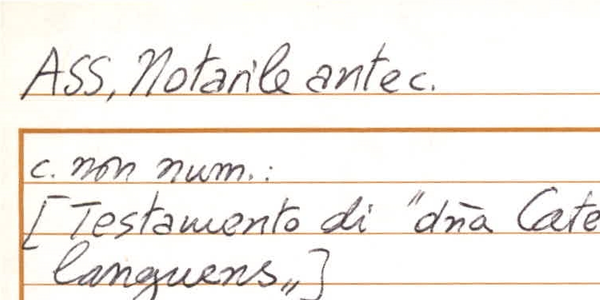 ASS, Notarile antec.
c. non num.:
[Testamento di "dña Cate
languens„]